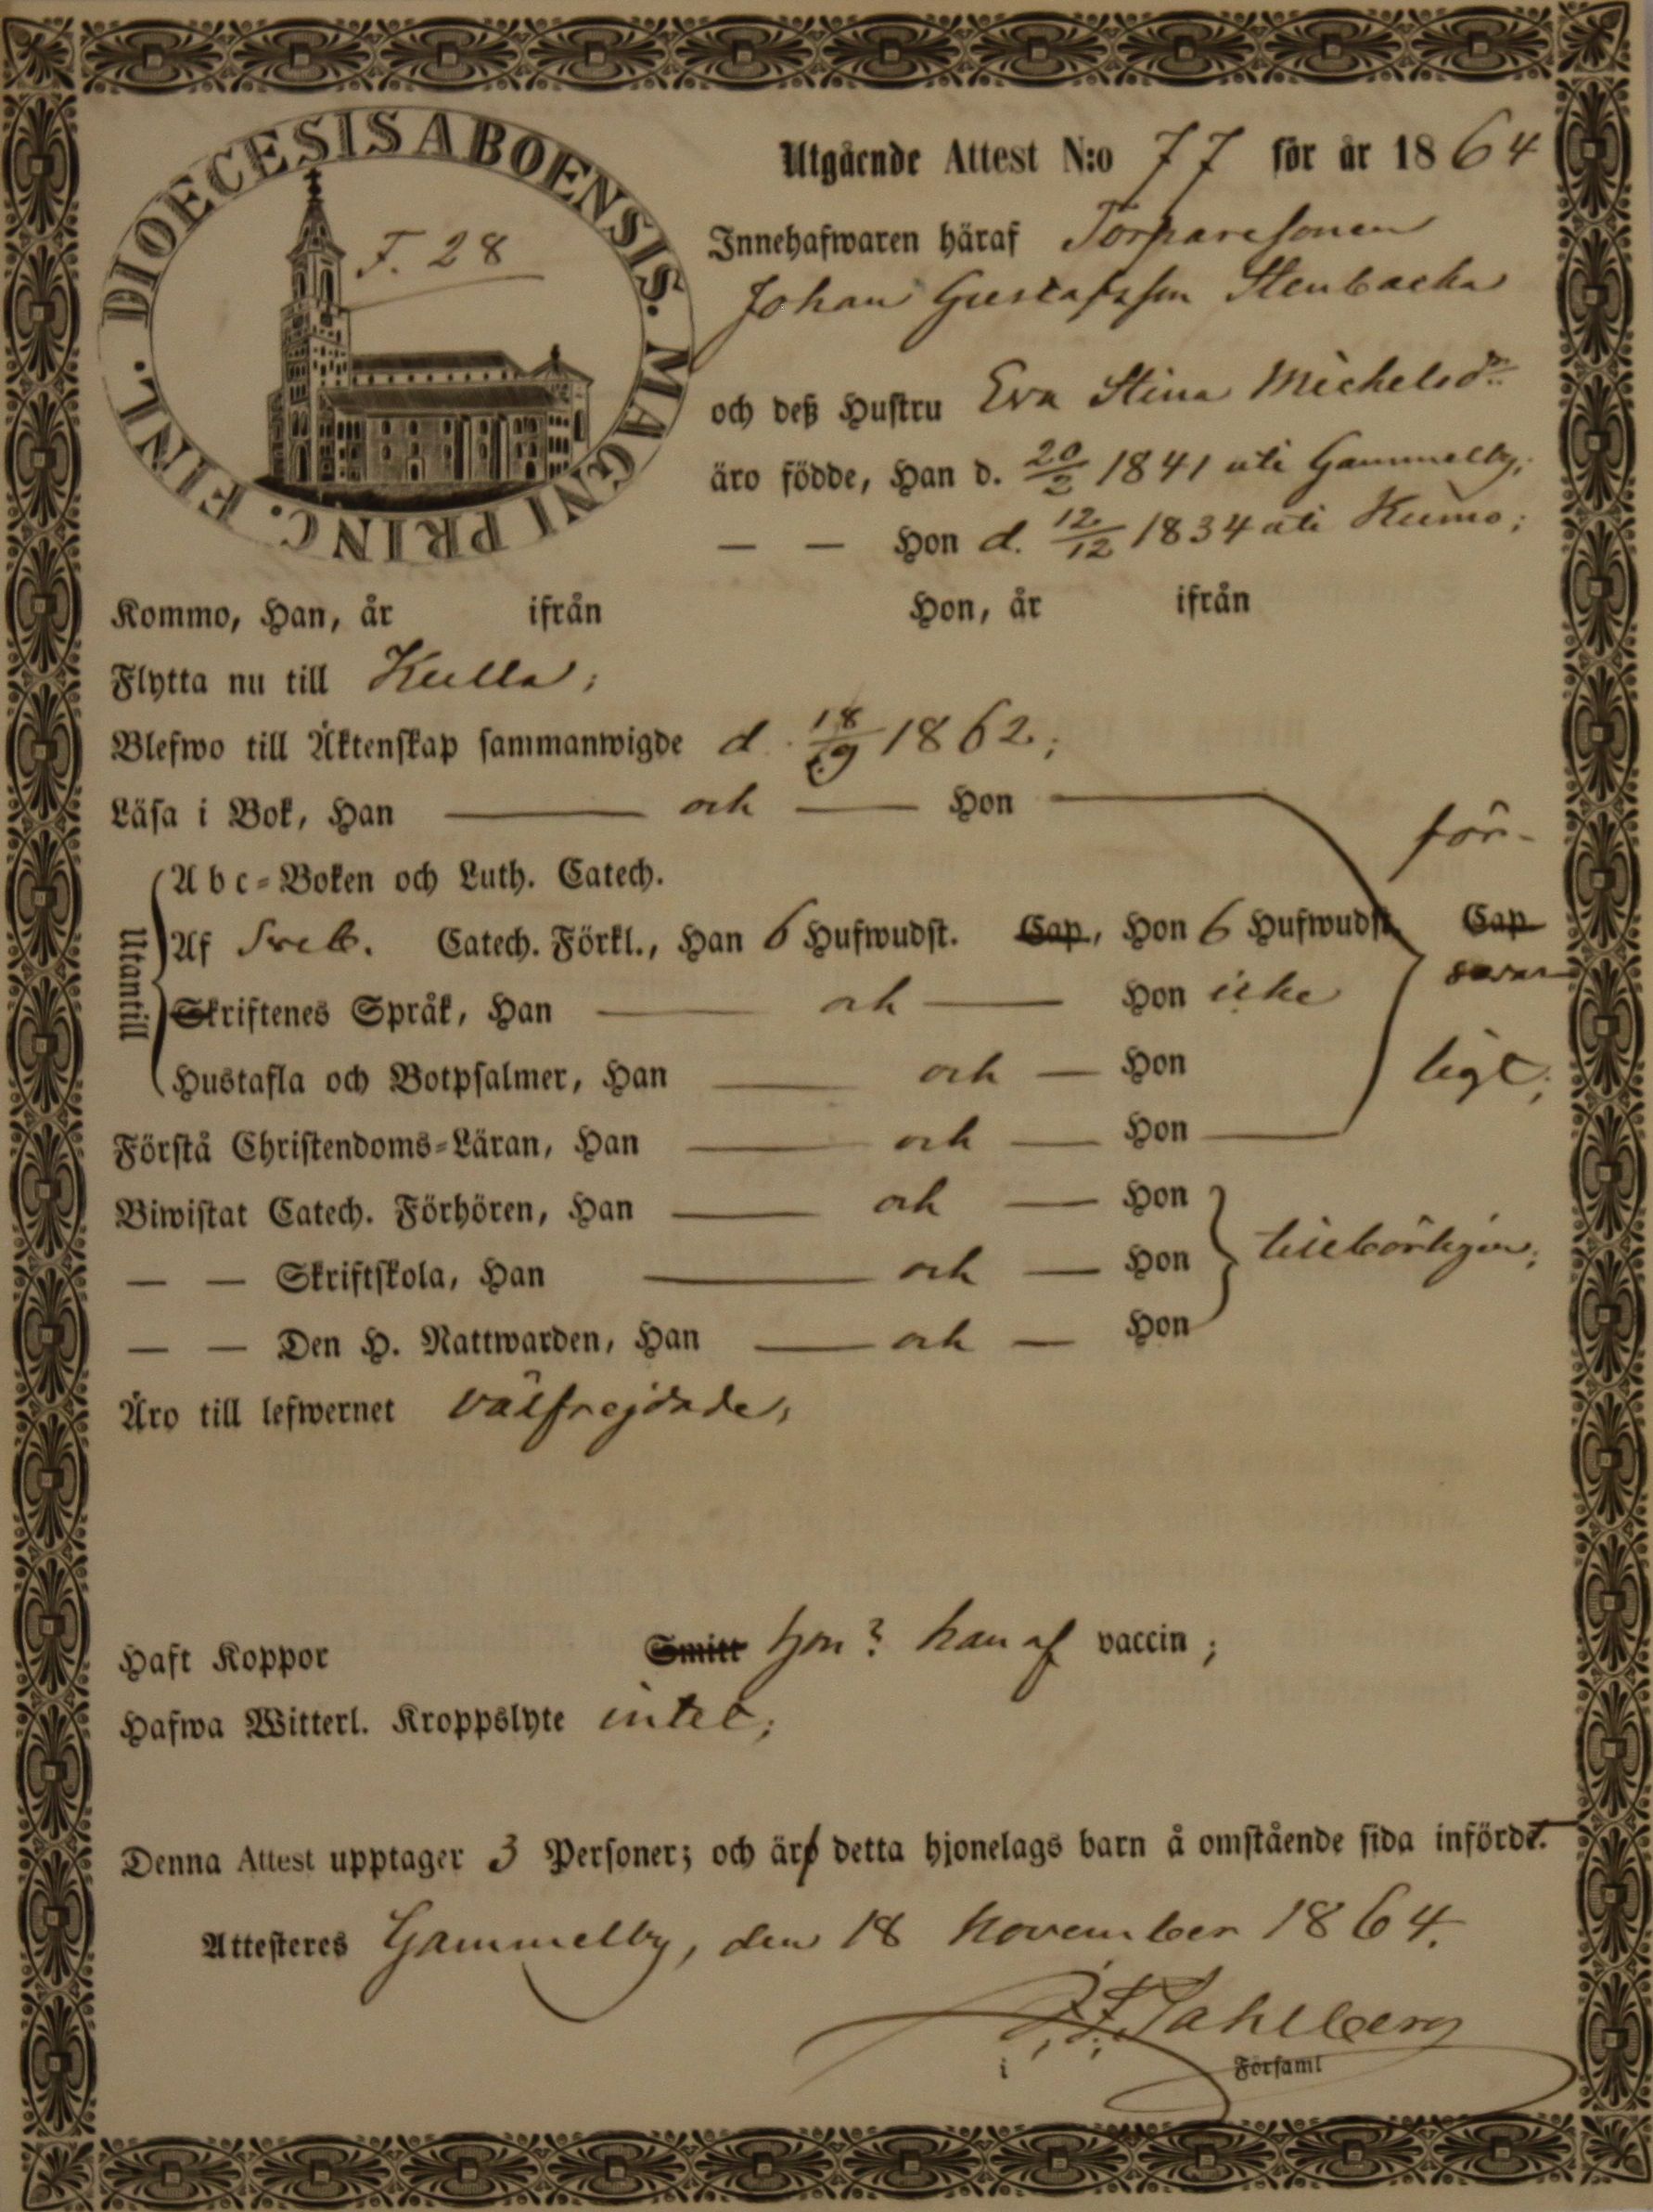 DIOECESIS ABOENSIS. MAGNI PRINC. FINL.
F. 28
Utgående Attest N:o 77 för år 1864
Innehafwaren häraf Torparesonen
Johan Gustafsson Stenbacka
och deß Hustru Eva Stina Michelsdr
äro födde, Han d. 20/2 1841 uti Gammelby;
— — Hon d. 12/12 1834 uti Kumo;
Kommo, Han, år ifrån Hon, år ifrån
Flytta nu till Kulla;
Blefwo till Äktenskap sammanwigde d. 18/9 1862;
Läsa i Bok, Han — och — Hon —
för-
Utantill
Abc-Boken och Luth. Catech.
Af Sveb. Catech. Förkl., Han 6 Hufwudst. Cap., Hon 6 Hufwudst. Cap
svar
Skriftenes Språk, Han — och — Hon icke
Hustafla och Botpsalmer, Han — och — Hon
ligt;
Förstå Christendoms-Läran, Han — och — Hon —
Biwistat Catech. Förhören, Han — och — Hon
— — Skriftskola, Han — och — Hon tillbörligen;
— — Den H. Nattwarden, Han — och — Hon
Äro till lefwernet välfrejdade;
Haft Koppor Smitt hon? han af vaccin;
Hafwa Witterl. Kroppslyte intet;
Denna Attest upptager 3 Personer; och äro detta hjonelags barn å omstående sida infördt.
Attesteres Gammelby, den 18 November 1864.
Sahlberg
i Församl